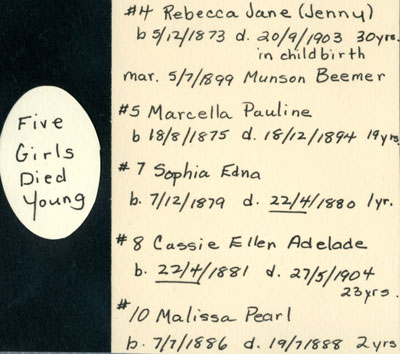 Five
Girls
Died
Young
#4 Rebecca Jane (Jenny)
b 5/12/1873 d. 20/9/1903 30yrs.
in childbirth
mar. 5/7/1899 Munson Beemer
#5 Marcella Pauline
b 18/8/1875 d. 18/12/1894 19yrs.
#7 Sophia Edna
b. 7/12/1879 d. 22/4/1880 1yr.
#8 Cassie Ellen Adelade
b. 22/4/1881 d. 27/5/1904
23yrs.
#10 Malissa Pearl
b. 7/7/1886 d. 19/7/1888 2yrs